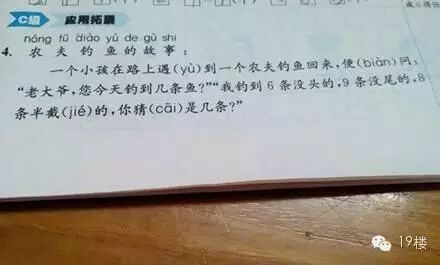 C级 应用拓展
nóng fū diào yú de gù shi
4. 农夫钓鱼的故事：
一个小孩在路上遇(yù)到一个农夫钓鱼回来，便(biàn)问：
“老大爷，您今天钓到几条鱼？”“我钓到6条没头的，9条没尾的，8
条半截(jié)的，你猜(cāi)是几条？”
19楼